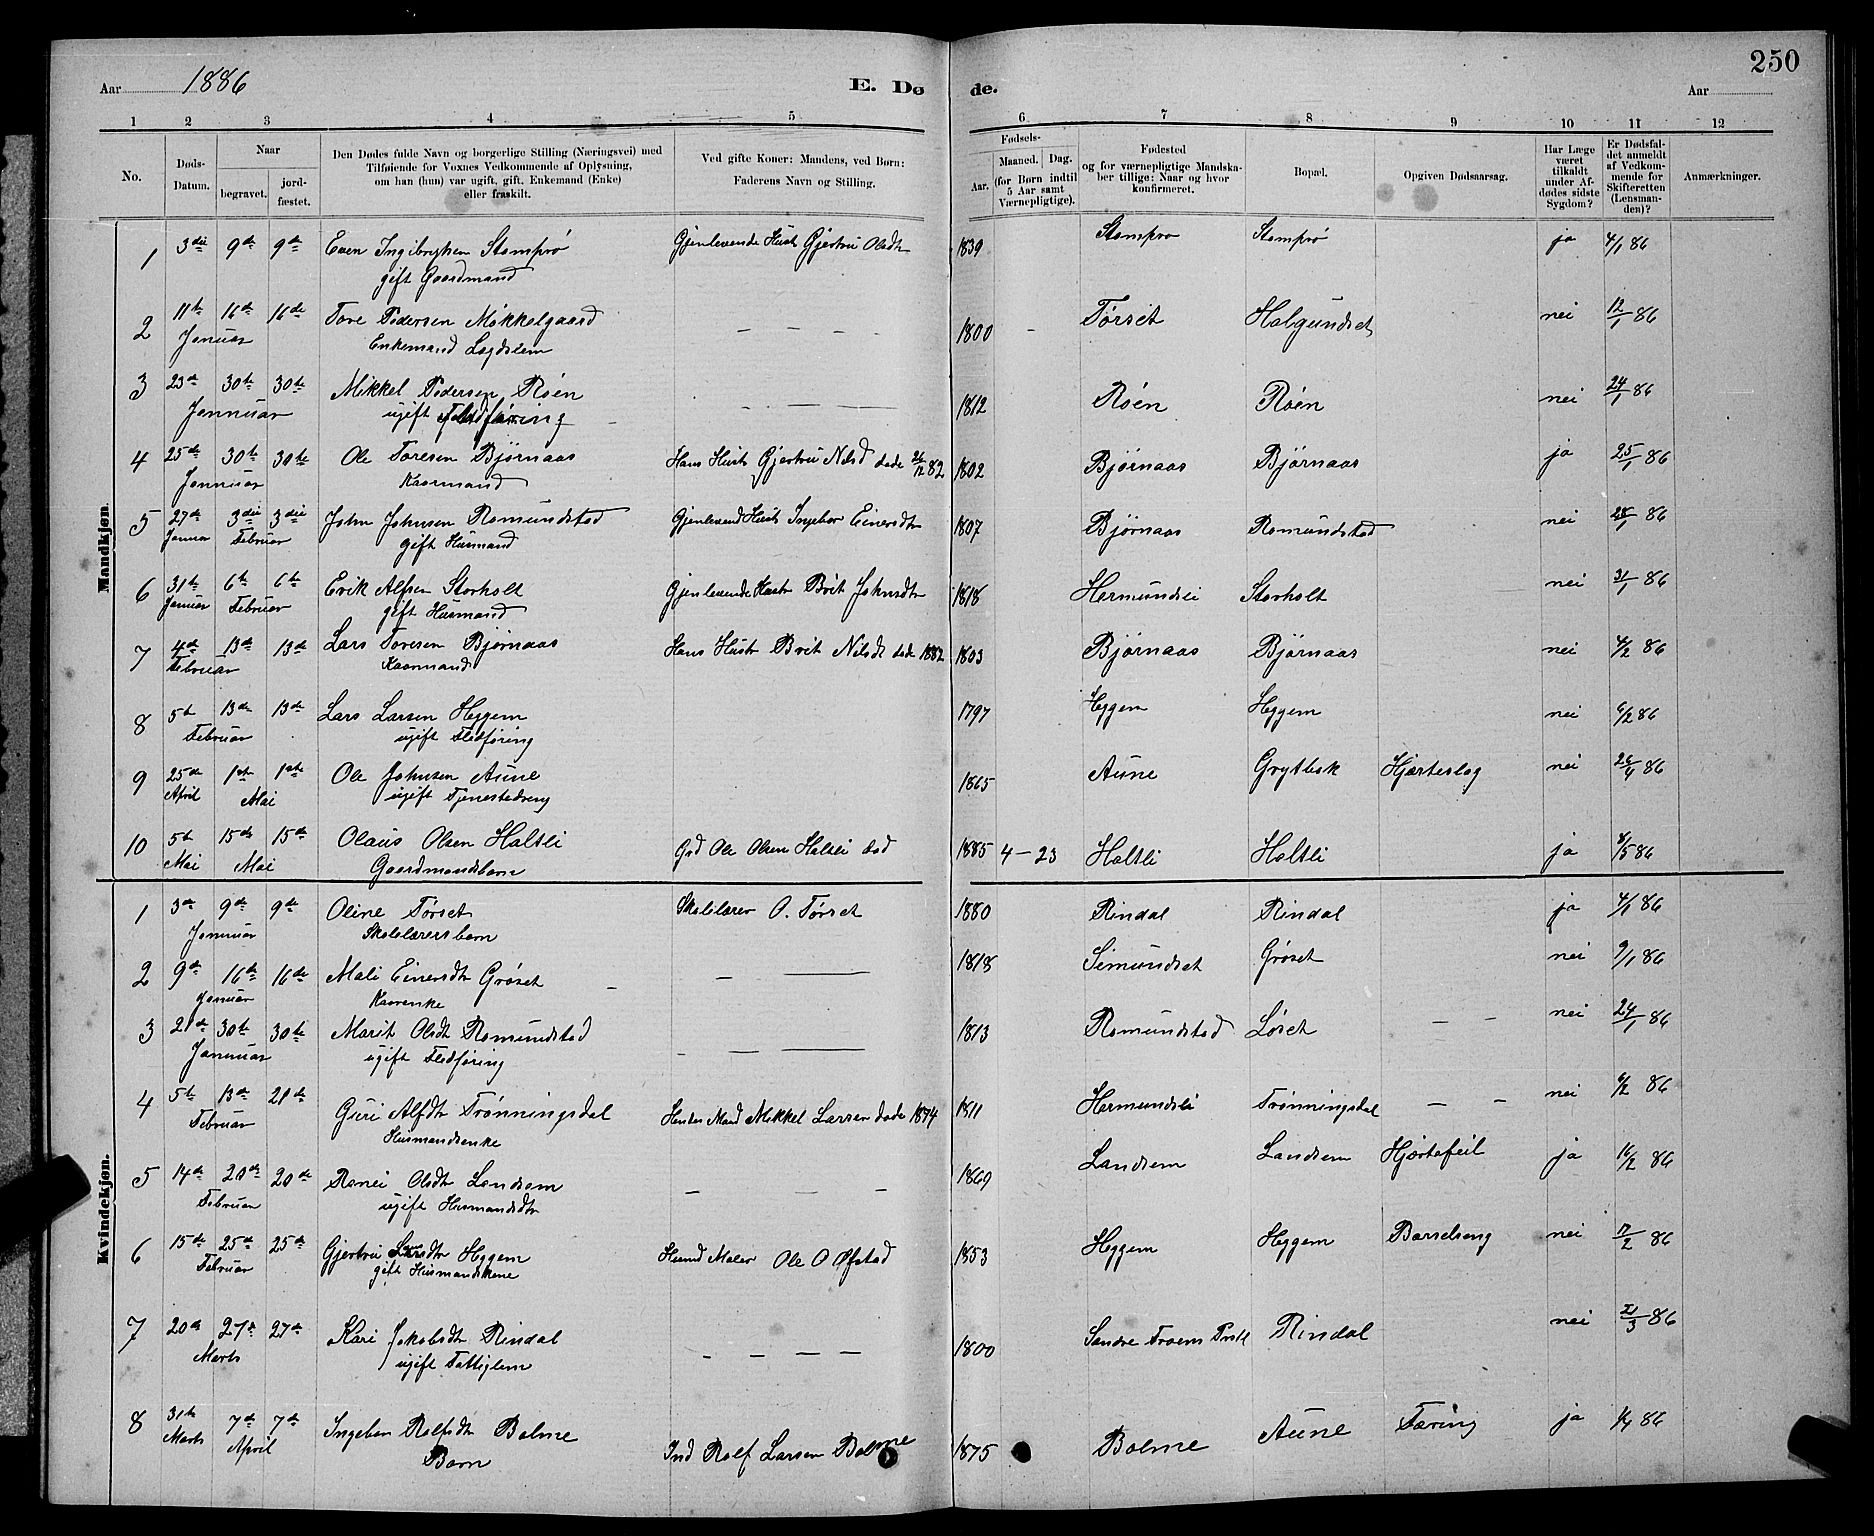 250
Aar 1886 E. Døde. Aar
1 2 3 4 5 6 7 8 9 10 11 12
No.
Døds-Datum.
Naar
begravet.
jord-fæstet.
Den Dødes fulde Navn og borgerlige Stilling (Næringsvei) med
Tilføiende for Voxnes Vedkommende af Oplysning,
om han (hun) var ugift, gift, Enkemand (Enke)
eller fraskilt.
Ved gifte Koner: Mandens, ved Børn:
Faderens Navn og Stilling.
Fødsels-
Aar.
Maaned. Dag.
(for Børn indtil
5 Aar samt
Værnepligtige).
Fødested
og for værnepligtige Mandska-
ber tillige: Naar og hvor
konfirmeret.
Bopæl.
Opgiven Dødsaarsag.
Har Læge
været
tilkaldt
under Af-
dødes sidste
Sygdom?
Er Dødsfal-
det anmeldt
af Vedkom-
mende for
Skifteretten
(Lensman-
den)?
Anmærkninger.
Mandkjøn.
1 3die 9de 9de Even Ingibrigtsen Stomprø Gjenlevende Hustr Gjertru Olsdtr 1839 Stomprø Stomprø ja 4/1 86
gift Gaardmand
2 11te 16de 16de Tore Pedersen Mikkelgaard — — — — 1800 - Tørset Halgundset nei 12/1 86
Januar Enkemand Lægdslem
3 23de 30te 30te Mikkel Pedersen Røen — — — — 1812 Røen Røen nei 24/1 86
Januar ugift Fledføring
4 25de 30te 30te Ole Toresen Bjørnaas Hans Hustr Gjertru Nilsd døde 26/12 82 1802 Bjørnaas Bjørnaas ja 25/1 86
Januar Kaarmand
5 27de 3die 3die John Johnsen Romundstad Gjenlevend Hustr Ingebor Einersdtr 1807 Bjørnaas Romundstad nei 28/1 86
Januar Februar gift Husmand
6 31te 6te 6te Erik Alfsen Storholt Gjenlevende Hustr Brit Johnsdtr 1818 Hermundsli Storholt nei 31/1 86
Januar Februar gift Husmand
7 4de 13de 13de Lars Toresen Bjørnaas Hans Hustr Brit Nilsdt døde 1882 1803 Bjørnaas Bjørnaas nei 4/2 86
Februar Kaarmand
8 5t 13de 13de Lars Larsen Heggem 1797 Heggem Heggem nei 6/2 86
Februar ugift Fledføring
9 25de 1ste 1ste Ole Johnsen Aune 1865 Aune Grytbak Hjærteslag nei 26/4 86
April Mai ugift Tjenestedreng
10 5t 15de 15de Olaus Olsen Haltli Grd Ole Olsen Haltli død 1885 4 — 23 Haltli Haltli ja 8/5 86
Mai Mai Gaardmandsbarn
Kvindekjøn.
1 3de 9de 9de Oline Tørset Skolelærer O. Tørset 1880 Rindal Rindal ja 4/1 86
Januar Skolelærersbarn
2 9de 16de 16de Mali Einersdtr Grøset — — 1818 Simundset Grøset nei 9/1 86
Januar Kaarenke
3 21de 30te 30te Marit Olsdt Romundstad — — — 1813 Romundstad Løset — — nei 24/1 86
Januar ugift Fledføring
4 5te 13de 21de Guri Alfsdtr Trønningsdal Hendes Mand Mikkel Larsen døde 1874 1811 Hermundsli Trønningsdal — — nei 6/2 86
Februar Husmandsenke
5 14de 20de 20de Ranei Olsdt Landsem — — — 1869 Landsem Landsem Hjertefeil ja 16/2 86
Februar ugift Husmandsdtr
6 15de 25de 25de Gjertru Larsdtr Heggem Husmd Maler Ole O Øfstad 1853 Heggem Heggem Barselseng nei 17/2 86
Februar gift Husmandskone
7 20de 27de 27de Kari Jakobsdt Rindal — — — — 1800 Søndre Froens Prstl Rindal nei 21/3 86
Marts ugift Fattiglem
8 31te 7de 7de Ingebor Rolfsdtr Bolme Ind Rolf Larsen Bolme 1875 Bolme Aune Tæring ja 1/4 86
Marts April Barn